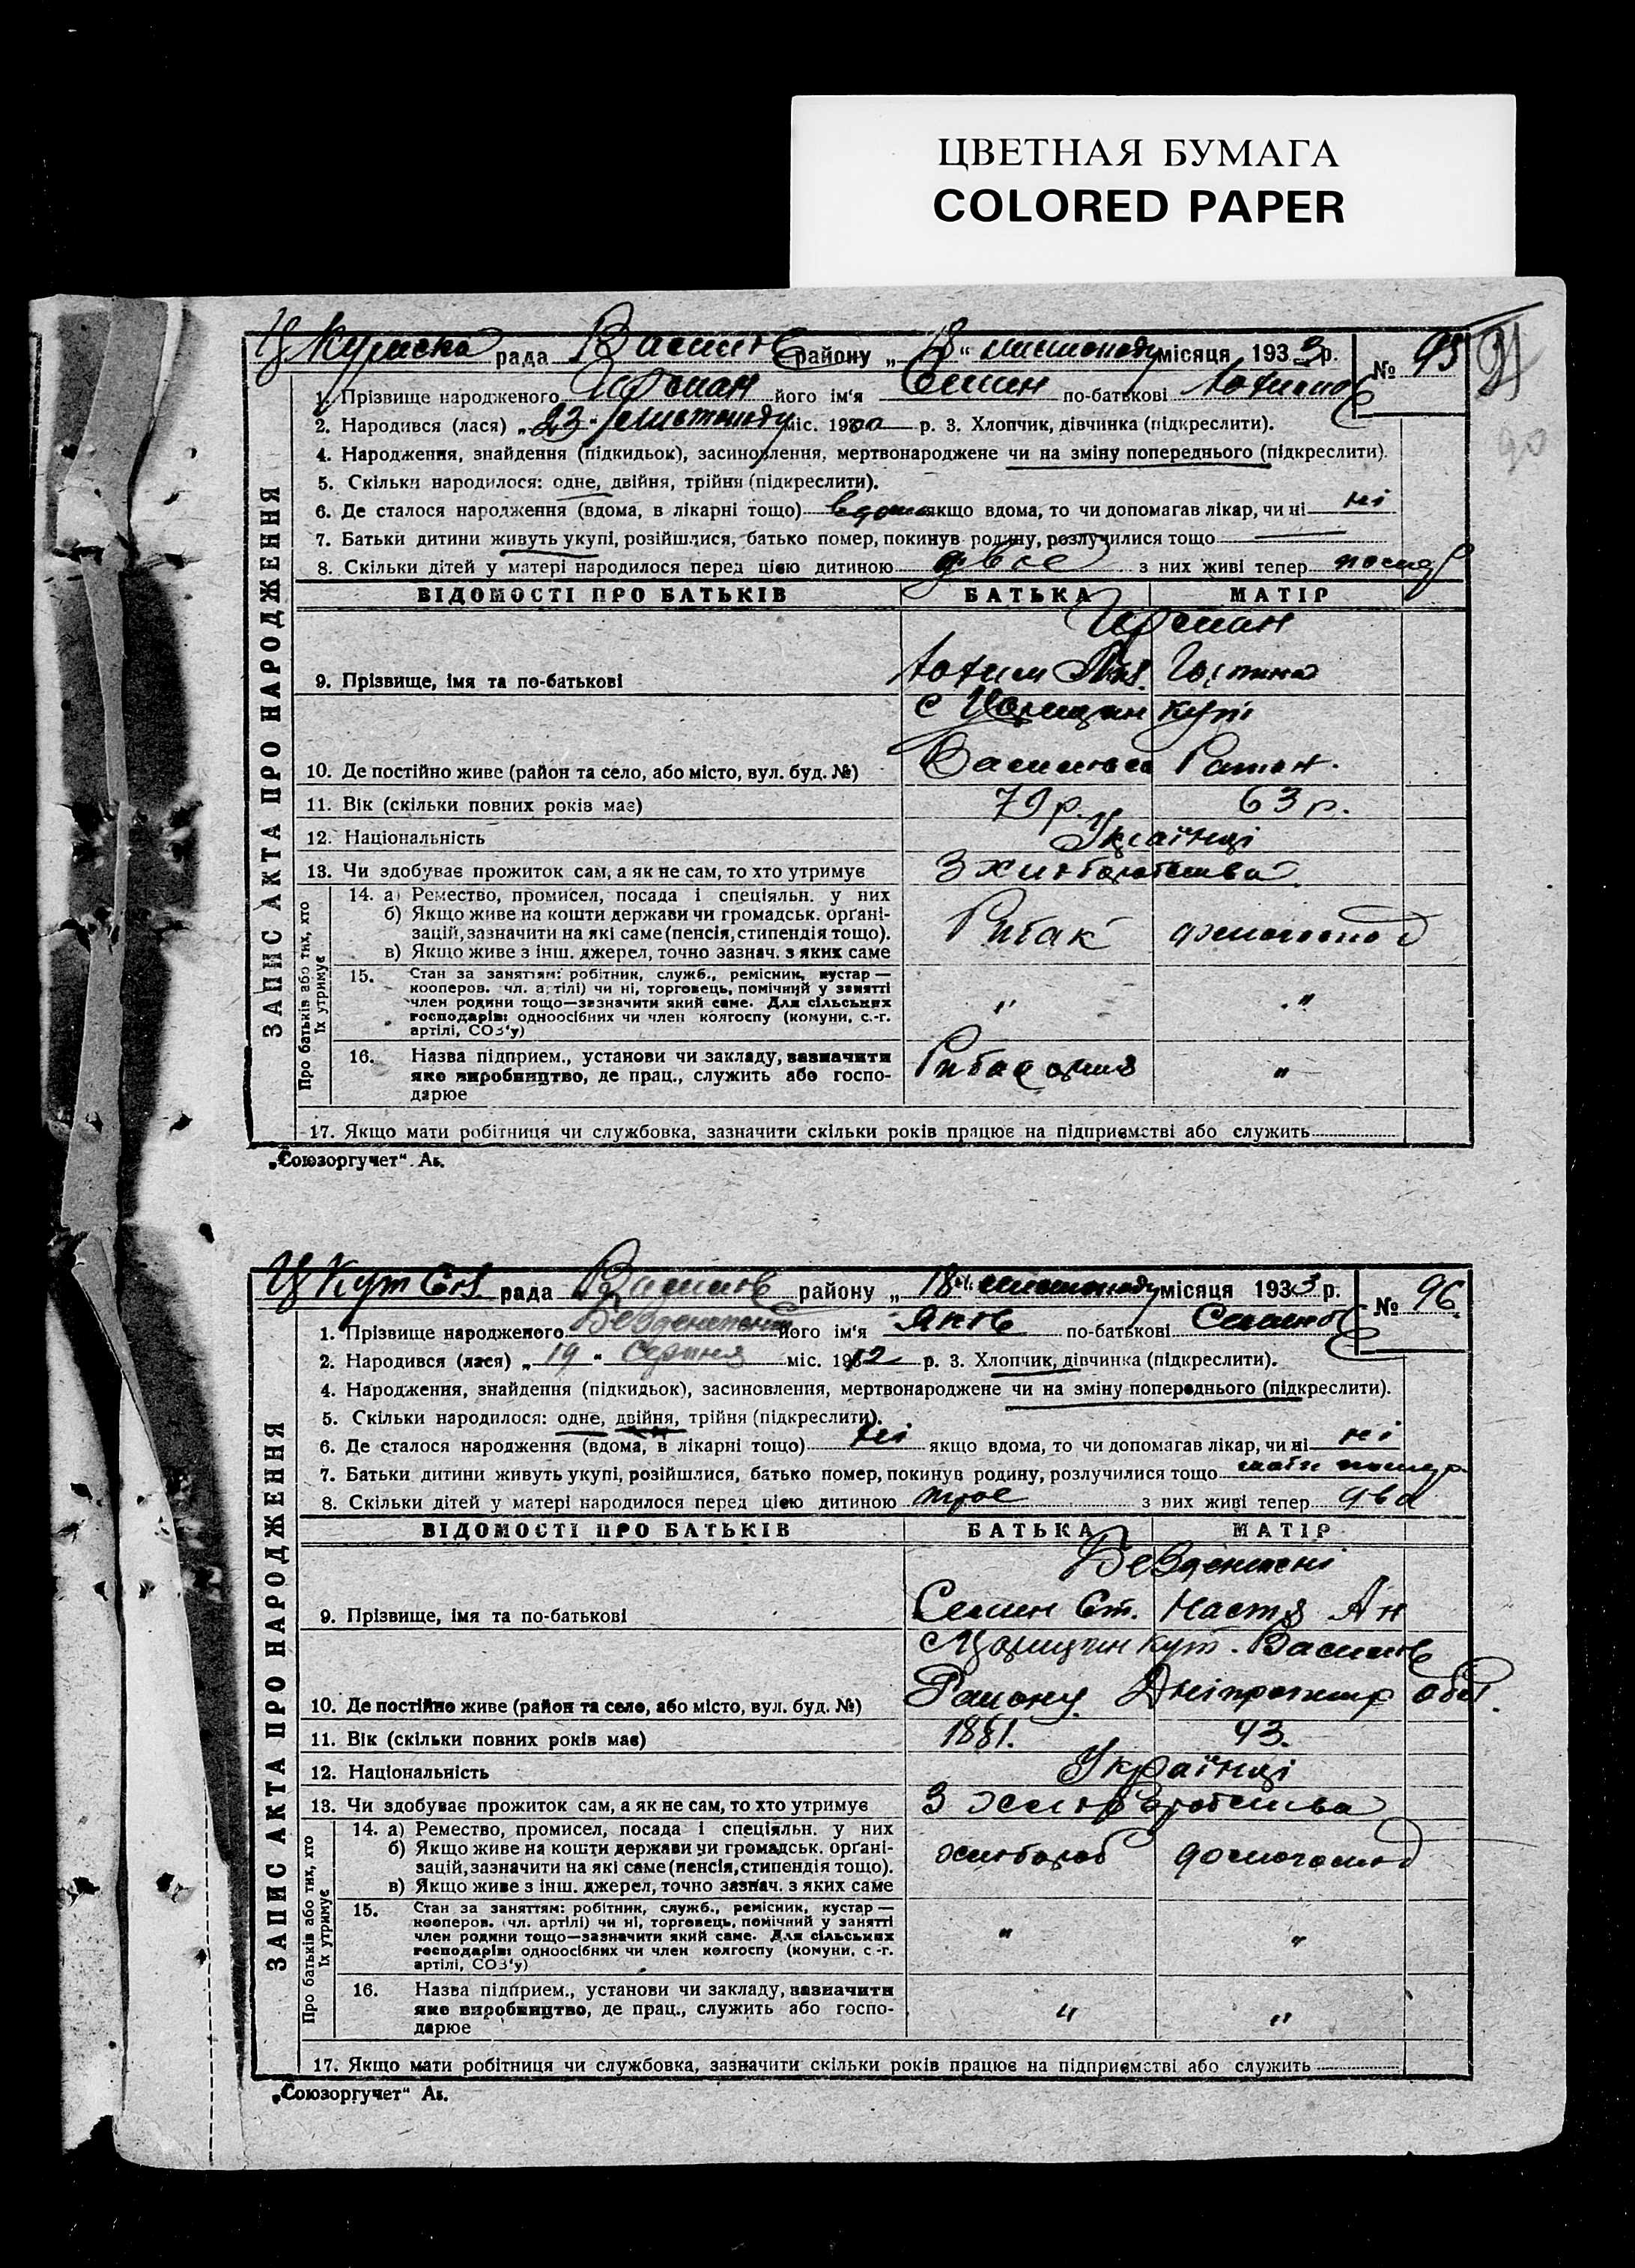 ЦВЕТНАЯ БУМАГА
COLORED PAPER
90
Ц Кутська рада Василів району „ 18 “ листопаду місяця 1933 р. № 95
1. Прізвище народженого його ім'я Семин по-батькові
2. Народився (лася) „ 23 “ листопаду міс. 1900 р. 3. Хлопчик, дівчинка (підкреслити).
4. Народження, знайдення (підкидьок), засиновлення, мертвонароджене чи на зміну попереднього (підкреслити).
5. Скільки народилося: одне, двійня, трійня (підкреслити).
6. Де сталося народження (вдома, в лікарні тощо) вдома якщо вдома, то чи допомагав лікар, чи ні ні
7. Батьки дитини живуть укупі, розійшлися, батько помер, покинув родину, розлучилися тощо
8. Скільки дітей у матері народилося перед цією дитиною двое з них живі тепер
ЗАПИС АКТА ПРО НАРОДЖЕННЯ
ВІДОМОСТІ ПРО БАТЬКІВ БАТЬКА МАТІР
9. Прізвище, імя та по-батькові
с Царицин Кут
10. Де постійно живе (район та село, або місто, вул. буд. №) Васильев Район.
11. Вік (скільки повних років має) 79 р. 63 р.
12. Національність Українці
13. Чи здобуває прожиток сам, а як не сам, то хто утримує З хліборобства
Про батьків або тих, хто їх утримує
14. а) Ремество, промисел, посада і спеціяльн. у них
б) Якщо живе на кошти держави чи громадськ. орґані-
зацій, зазначити на які саме (пенсія, стипендія тощо).
в) Якщо живе з інш. джерел, точно зазнач. з яких саме
Рибак домогоспод
15. Стан за заняттям: робітник, служб., ремісник, кустар —
кооперов. чл. артілі) чи ні, торговець, помічний у занятті
член родини тощо—зазначити який саме. Для сільських
господарів: одноосібних чи член колгоспу (комуни, с.-г.
артілі, СОЗ'у)
" "
16. Назва підприєм., установи чи закладу, зазначити
яке виробництво, де прац., служить або госпо-
дарює
"
17. Якщо мати робітниця чи службовка, зазначити скільки років працює на підприємстві або служить
„Союзоргучет“ Ак.
Ц Кут рада Василів району „ 18 “ листопаду місяця 1933 р. № 96
1. Прізвище народженого його ім'я Яків по-батькові Семенов
2. Народився (лася) „ 19 “ Серпня міс. 1912 р. 3. Хлопчик, дівчинка (підкреслити).
4. Народження, знайдення (підкидьок), засиновлення, мертвонароджене чи на зміну попереднього (підкреслити).
5. Скільки народилося: одне, двійня, трійня (підкреслити).
6. Де сталося народження (вдома, в лікарні тощо) ні якщо вдома, то чи допомагав лікар, чи ні ні
7. Батьки дитини живуть укупі, розійшлися, батько помер, покинув родину, розлучилися тощо мати
8. Скільки дітей у матері народилося перед цією дитиною трое з них живі тепер два
ЗАПИС АКТА ПРО НАРОДЖЕННЯ
ВІДОМОСТІ ПРО БАТЬКІВ БАТЬКА МАТІР
Безденежні
9. Прізвище, імя та по-батькові Семин Ст. Настя Ан
с Царицин Кут. Василів
10. Де постійно живе (район та село, або місто, вул. буд. №) Району Дніпропетр обл.
11. Вік (скільки повних років має) 1881. 43.
12. Національність Українці
13. Чи здобуває прожиток сам, а як не сам, то хто утримує З хліборобства
Про батьків або тих, хто їх утримує
14. а) Ремество, промисел, посада і спеціяльн. у них
б) Якщо живе на кошти держави чи громадськ. орґані-
зацій, зазначити на які саме (пенсія, стипендія тощо).
в) Якщо живе з інш. джерел, точно зазнач. з яких саме
хлібороб домогоспод
15. Стан за заняттям: робітник, служб., ремісник, кустар —
кооперов. чл. артілі) чи ні, торговець, помічний у занятті
член родини тощо—зазначити який саме. Для сільських
господарів: одноосібних чи член колгоспу (комуни, с.-г.
артілі, СОЗ'у)
" "
16. Назва підприєм., установи чи закладу, зазначити
яке виробництво, де прац., служить або госпо-
дарює
" "
17. Якщо мати робітниця чи службовка, зазначити скільки років працює на підприємстві або служить
„Союзоргучет“ Ак.